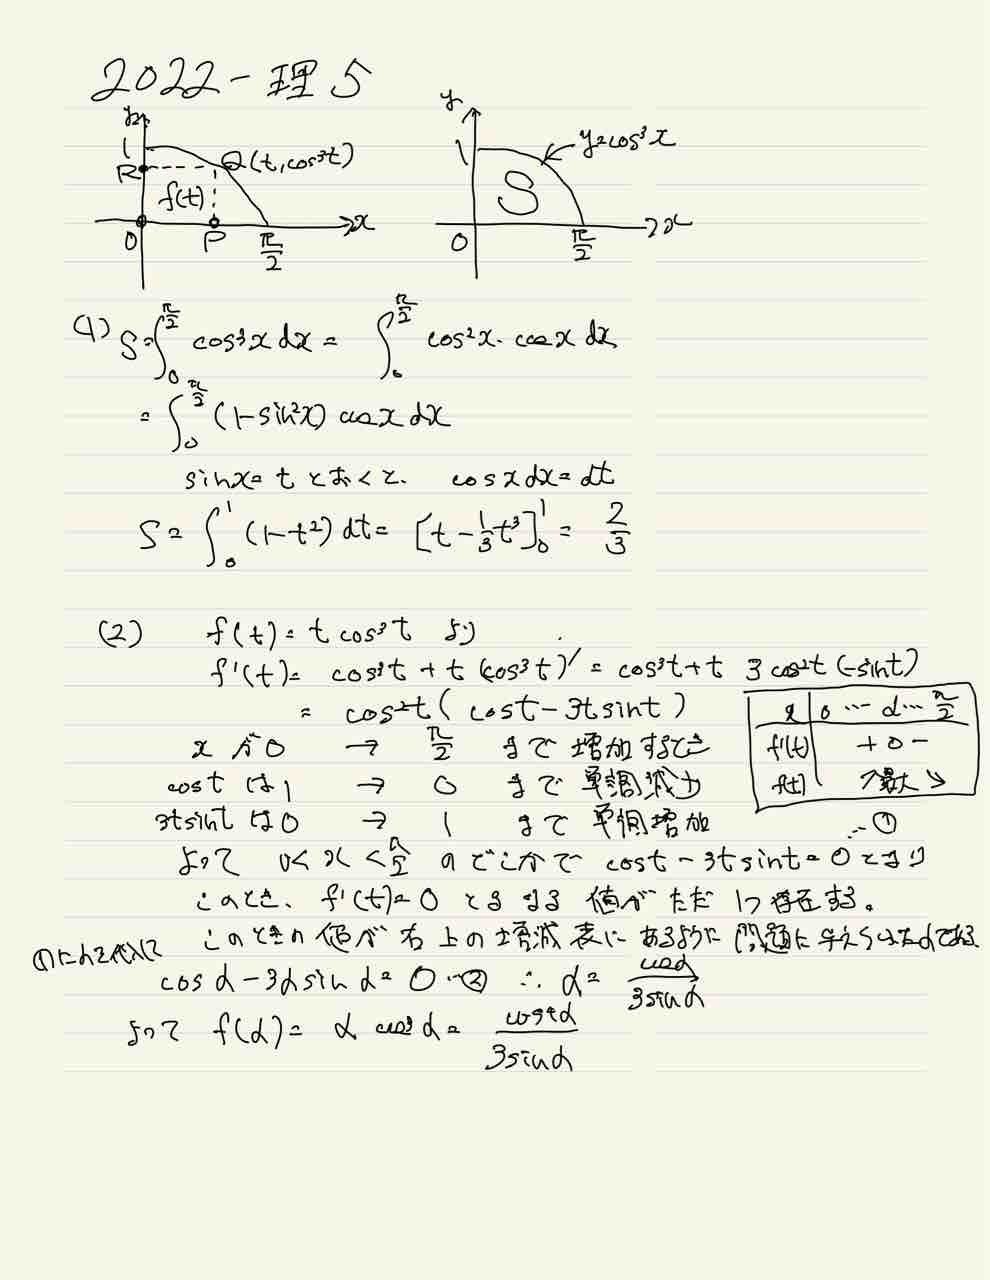 2022-理5
y
1
R
Q(t,cos³t)
f(t)
O
P
π/2
x
y
1
y=cos³x
S
O
π/2
x
(1) S=∫₀^{π/2} cos³x dx = ∫₀^{π/2} cos²x・cosx dx
=∫₀^{π/2} (1-sin²x) cosx dx
sinx=t とおくと、 cosxdx=dt
S=∫₀¹ (1-t²) dt = [t-1/3t³]₀¹ = 2/3
(2) f(t)=t cos³t より
f'(t)= cos³t + t (cos³t)' = cos³t+t 3cos²t(-sint)
= cos²t(cost-3tsint)
x 0 … α … π/2
f'(t) + 0 -
f(t) ↗最大↘
xが0 → π/2 まで 増加するとき
costは1 → 0 まで 単調減少
3tsintは0 → 1 まで 単調増加
…①
よって 0<x<π/2 のどこかで cost-3tsint=0となり
このとき、f'(t)=0 となる値がただ1つ存在する。
このときの値が右上の増減表にあるように問題に与えられたαである
①に代入して
cosα-3αsinα=0…② ∴ α= cosα/3sinα
よって f(α)= α cos³α= cos⁴α/3sinα